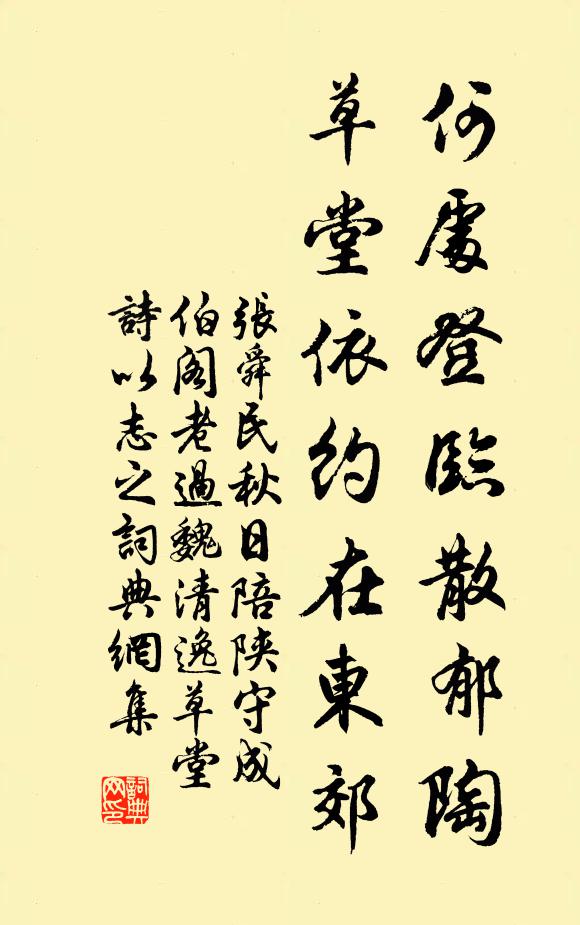 何處登臨散郁陶
草堂依約在東郊
張舜民秋日陪陝守成
伯閣老過魏清逸草堂
詩以志之詞典網集
詞典网印